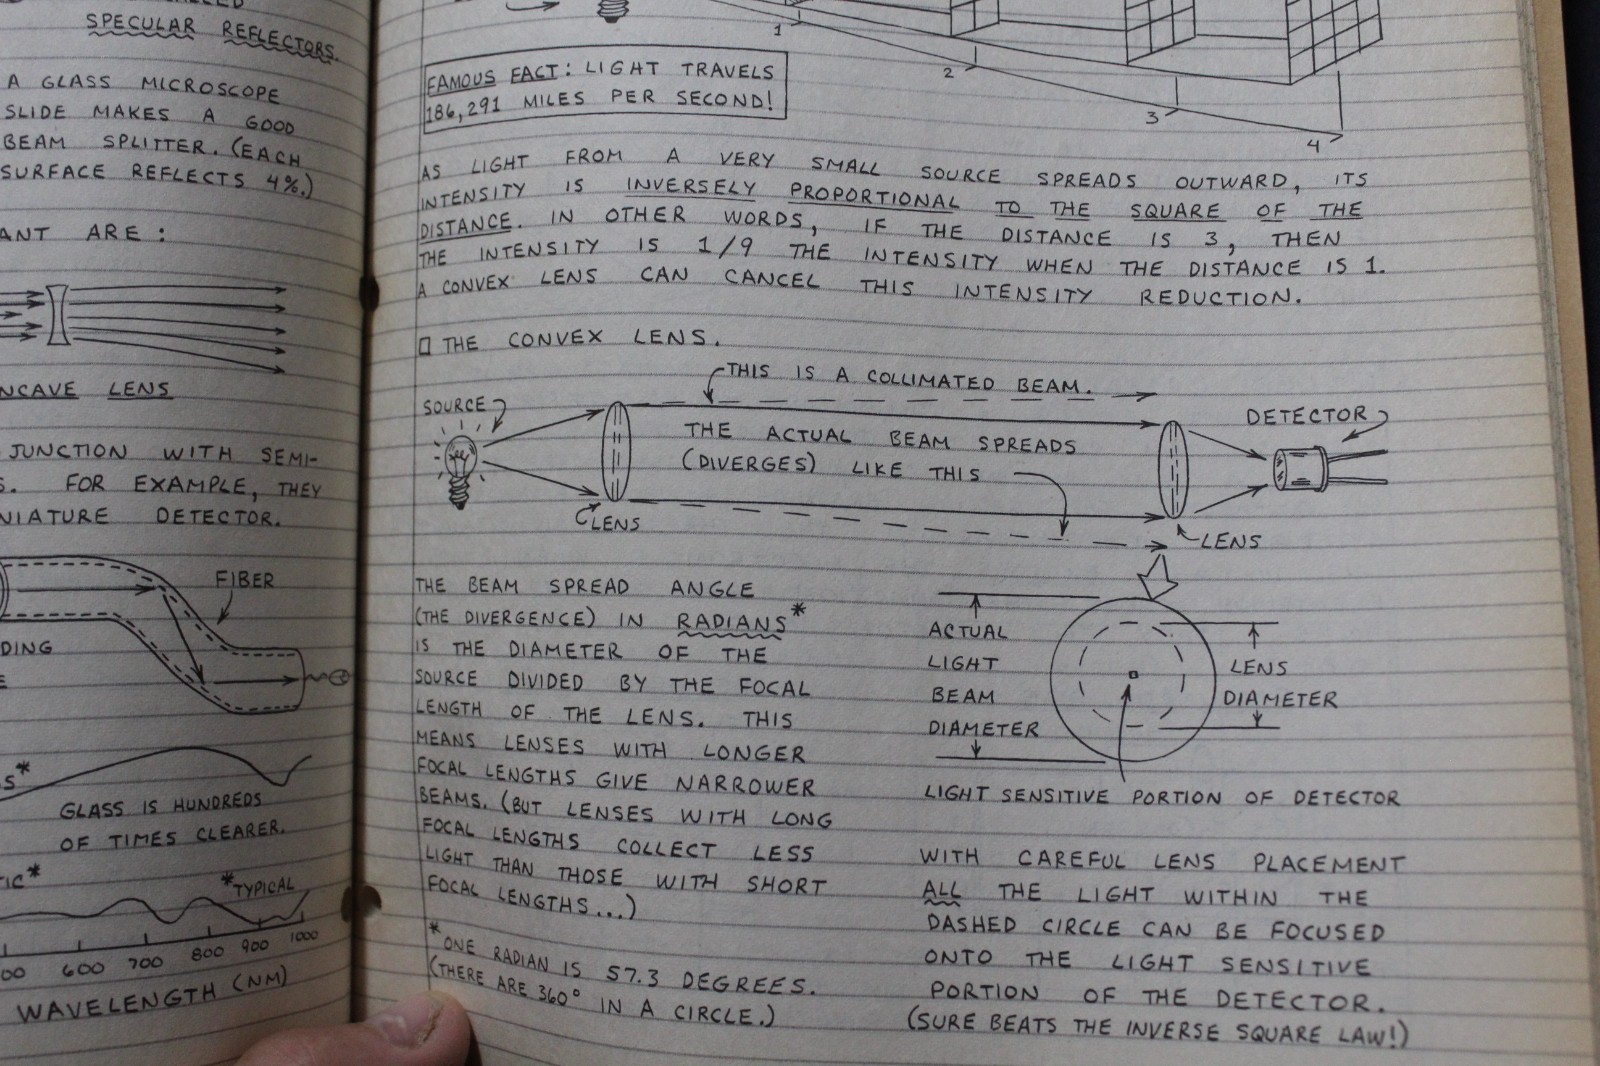 SPECULAR REFLECTORS.
A GLASS MICROSCOPE
SLIDE MAKES A GOOD
BEAM SPLITTER. (EACH
SURFACE REFLECTS 4%.)
ARE:
LENS
JUNCTION WITH SEMI-
FOR EXAMPLE, THEY
DETECTOR.
FIBER
GLASS IS HUNDREDS
OF TIMES CLEARER.
*TYPICAL
600 700 800 900 1000
WAVELENGTH (NM)
1
2
3
4
FAMOUS FACT: LIGHT TRAVELS
186,291 MILES PER SECOND!
AS LIGHT FROM A VERY SMALL SOURCE SPREADS OUTWARD, ITS
INTENSITY IS INVERSELY PROPORTIONAL TO THE SQUARE OF THE
DISTANCE. IN OTHER WORDS, IF THE DISTANCE IS 3, THEN
THE INTENSITY IS 1/9 THE INTENSITY WHEN THE DISTANCE IS 1.
A CONVEX LENS CAN CANCEL THIS INTENSITY REDUCTION.
□ THE CONVEX LENS.
THIS IS A COLLIMATED BEAM.
SOURCE
DETECTOR
THE ACTUAL BEAM SPREADS
(DIVERGES) LIKE THIS
LENS
LENS
THE BEAM SPREAD ANGLE
(THE DIVERGENCE) IN RADIANS*
IS THE DIAMETER OF THE
SOURCE DIVIDED BY THE FOCAL
LENGTH OF THE LENS. THIS
MEANS LENSES WITH LONGER
FOCAL LENGTHS GIVE NARROWER
BEAMS. (BUT LENSES WITH LONG
FOCAL LENGTHS COLLECT LESS
LIGHT THAN THOSE WITH SHORT
FOCAL LENGTHS...)
*ONE RADIAN IS 57.3 DEGREES.
(THERE ARE 360° IN A CIRCLE.)
ACTUAL
LIGHT
BEAM
DIAMETER
LENS
DIAMETER
LIGHT SENSITIVE PORTION OF DETECTOR
WITH CAREFUL LENS PLACEMENT
ALL THE LIGHT WITHIN THE
DASHED CIRCLE CAN BE FOCUSED
ONTO THE LIGHT SENSITIVE
PORTION OF THE DETECTOR.
(SURE BEATS THE INVERSE SQUARE LAW!)